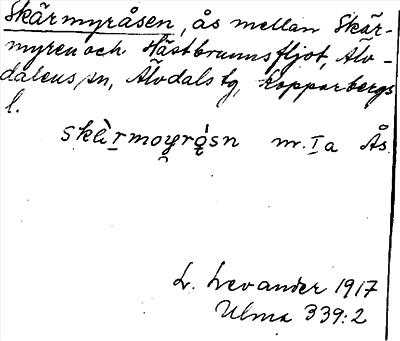 Skärmyråsen, ås mellan Skär-
myren och Hästbrunnsfljot, Älv-
dalens sn, Älvdals tg, Kopparbergs
l.
skèrmoyrǻsn m. Ia Ås.
L. Levander 1917
Ulma 339:2